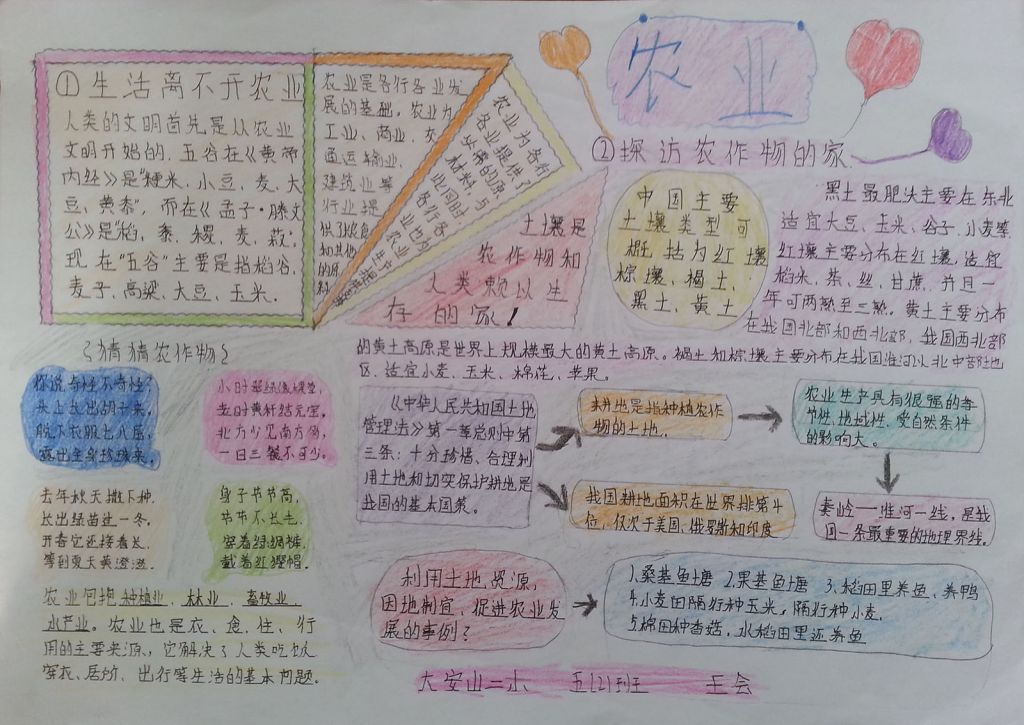 农业
①生活离不开农业
人类的文明首先是从农业
文明开始的，五谷在《黄帝
内经》是“粳米、小豆、麦、大
豆、黄黍”，而在《孟子·滕文
公》是“稻、黍、稷、麦、菽”。
现在“五谷”主要是指稻谷、
麦子、高粱、大豆、玉米。
农业是各行各业发
展的基础，农业为
工业、商业、交
通运输业、
建筑业等
行业提
供了粮食
和其他
的原
料
农业为各行
各业提供了
必需的原
材料，与
此同时
各行各
业也为
农业
生产提供
土壤是
农作物和
人类赖以生
存的家！
②探访农作物的家
中国主要
土壤类型可
概括为红壤
棕壤、褐土、
黑土、黄土
黑土最肥沃主要在东北
适宜大豆、玉米、谷子、小麦等
红壤主要分布在红壤，适宜
稻米、茶、丝、甘蔗，并且一
年可两熟至三熟。黄土主要分布
在我国北部和西北部，我国西北部
的黄土高原是世界上规模最大的黄土高原。褐土和棕壤主要分布在我国淮河以北中部地
区、适宜小麦、玉米、棉花、苹果。
《猜猜农作物》
你说奇怪不奇怪？
头上长出胡子来，
脱下衣服七八层，
露出全身珍珠来。
小时青绿像课堂，
老时黄杆结元宝。
北方少见南方多，
一日三餐不可少。
去年秋天撒下种，
长出绿苗过一冬。
开春它还接着长，
等到夏天黄澄澄。
身子节节高，
节节不长毛，
穿着绿绸裤，
戴着红缨帽。
农业包括种植业、林业、畜牧业、
水产业。农业也是衣、食、住、行
用的主要来源，它解决了人类吃饮
穿衣、居所、出行等生活的基本问题。
《中华人民共和国土地
管理法》第一章总则中第
三条：十分珍惜、合理利
用土地和切实保护耕地是
我国的基本国策。
耕地是指种植农作
物的土地。
农业生产具有很强的季
节性、地域性。受自然条件
的影响大。
我国耕地面积在世界排第4
位，仅次于美国、俄罗斯和印度
秦岭——淮河一线，是我
国一条最重要的地理界线。
利用土地资源，
因地制宜，促进农业发
展的事例？
1.桑基鱼塘 2.果基鱼塘 3.稻田里养鱼、养鸭
4.小麦田隔行种玉米，隔行种小麦。
5.棉田种香菇，水稻田里还养鱼
大安山二小 五(2)班 王会